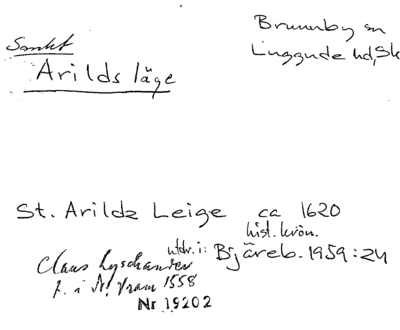 Brunnby sn
Sankt
Luggude hd, Sk
Arilds läge
St. Arildz Leige ca 1620
hist. krön.
utdr. i: Bjäreb. 1959:24
Claus Lyschander
f. i N. Vram 1558
Nr 19202